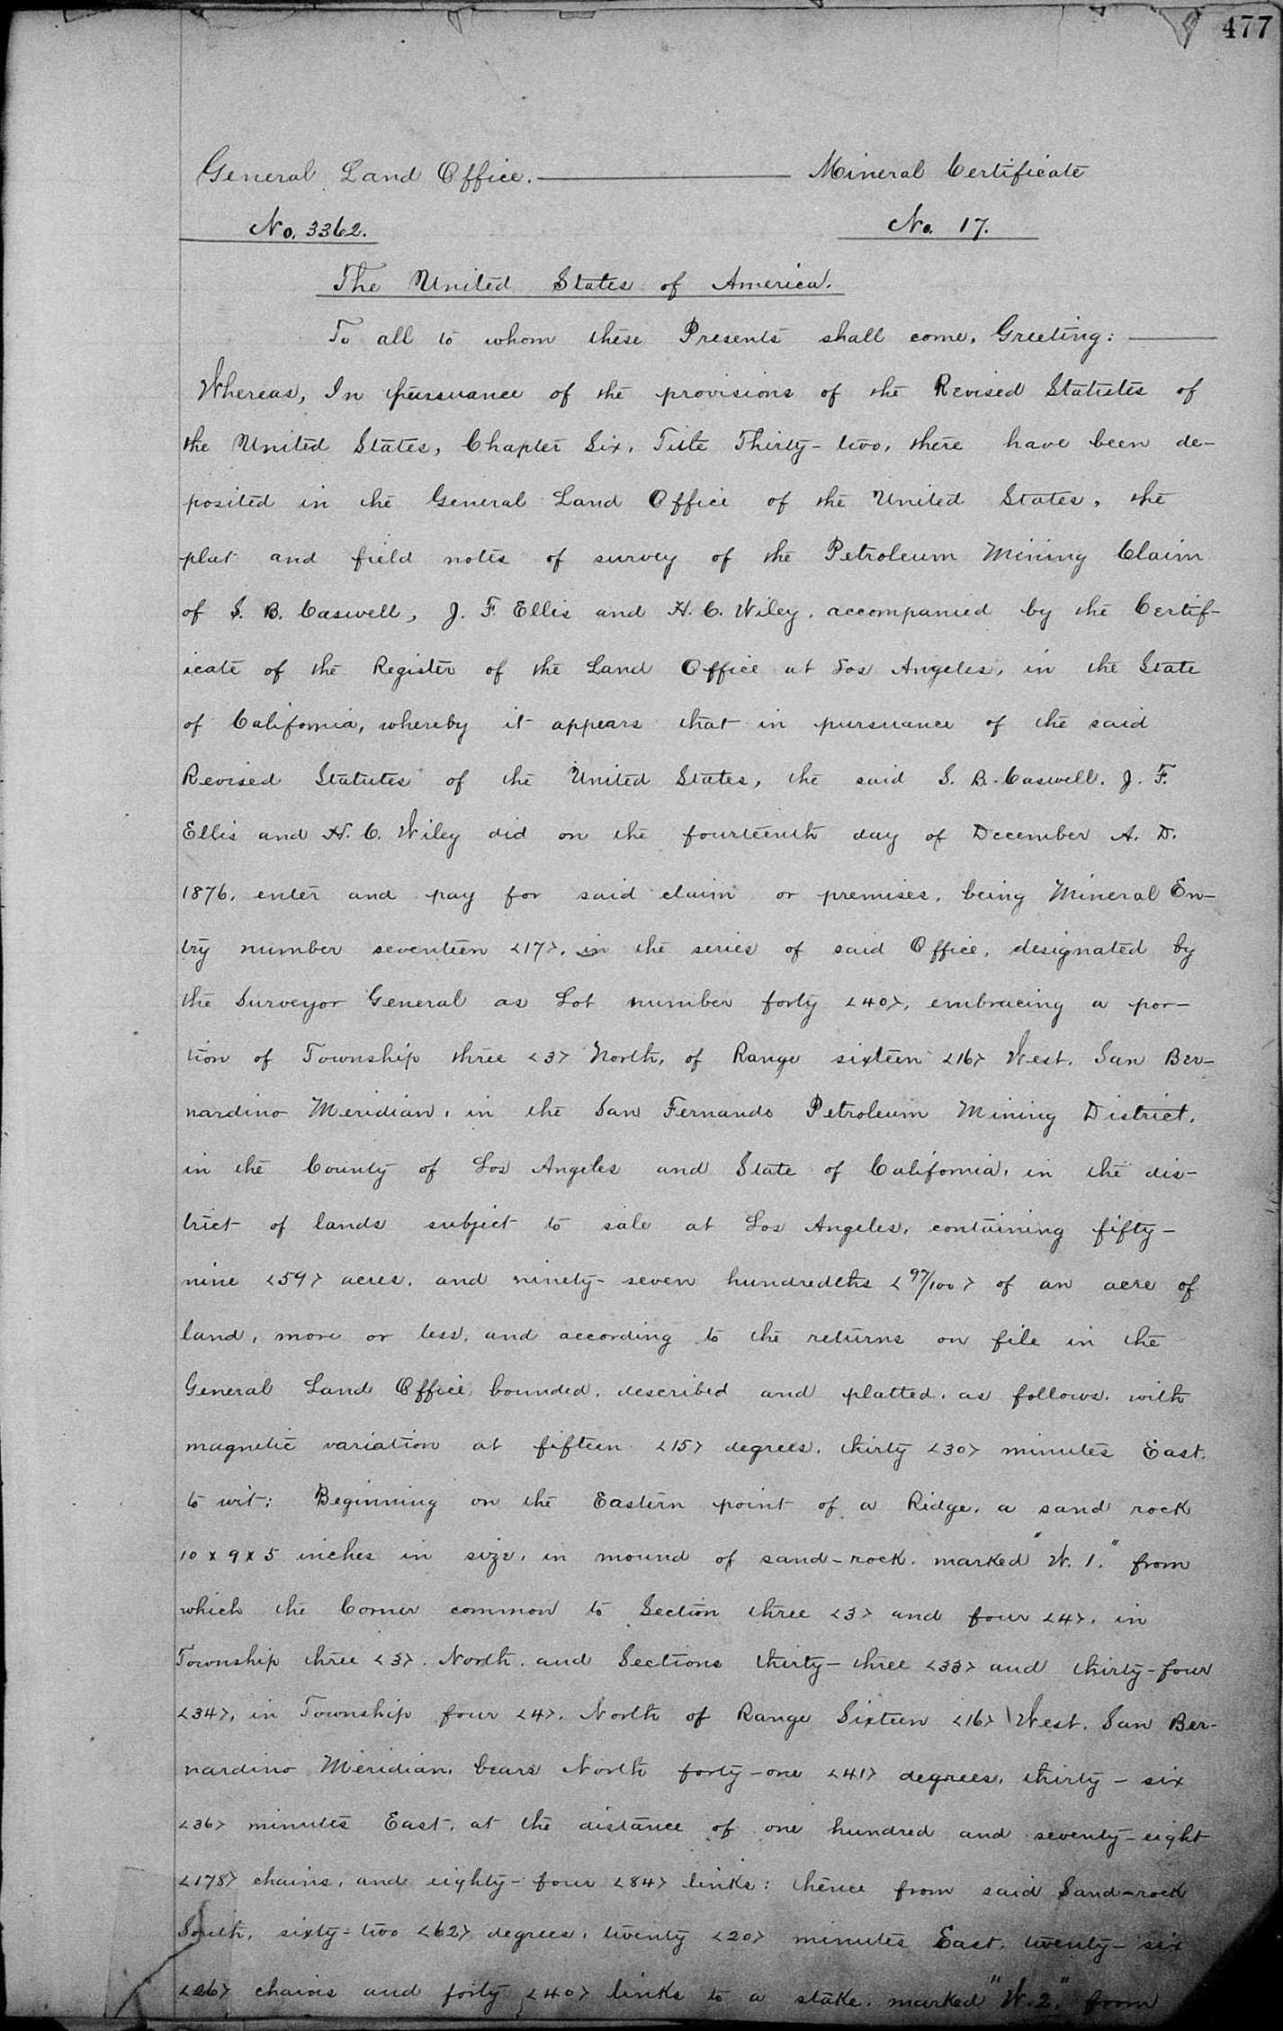 477
General Land Office. — Mineral Certificate
No. 3362. No. 17.
The United States of America.
To all to whom these Presents shall come, Greeting: —
Whereas, In pursuance of the provisions of the Revised Statutes of
the United States, Chapter Six, Title Thirty-two, there have been de-
posited in the General Land Office of the United States, the
plat and field notes of survey of the Petroleum Mining Claim
of S. B. Caswell, J. F. Ellis and H. C. Wiley, accompanied by the Certif-
icate of the Register of the Land Office at Los Angeles, in the State
of California, whereby it appears that in pursuance of the said
Revised Statutes of the United States, the said S. B. Caswell, J. F.
Ellis and H. C. Wiley did on the fourteenth day of December A. D.
1876, enter and pay for said claim or premises, being Mineral En-
try number seventeen <17>, in the series of said Office, designated by
the Surveyor General as Lot number forty <40>, embracing a por-
tion of Township three <3> North, of Range sixteen <16> West, San Ber-
nardino Meridian, in the San Fernando Petroleum Mining District,
in the County of Los Angeles and State of California, in the dis-
trict of lands subject to sale at Los Angeles, containing fifty-
nine <59> acres, and ninety-seven hundredths <97/100> of an acre of
land, more or less, and according to the returns on file in the
General Land Office, bounded, described and platted, as follows, with
magnetic variation at fifteen <15> degrees, thirty <30> minutes East,
to wit: Beginning on the Eastern point of a Ridge, a sand rock
10 x 9 x 5 inches in size, in mound of sand-rock, marked "W. 1." from
which the Corner common to Section three <3> and four <4>, in
Township three <3>, North, and Sections thirty-three <33> and thirty-four
<34>, in Township four <4>, North of Range Sixteen <16> West, San Ber-
nardino Meridian, bears North forty-one <41> degrees, thirty-six
<36> minutes East, at the distance of one hundred and seventy-eight
<178> chains, and eighty-four <84> links: thence from said Sand-rock
South, sixty-two <62> degrees, twenty <20> minutes East, twenty-six
<26> chains and forty <40> links to a stake, marked "W. 2." from